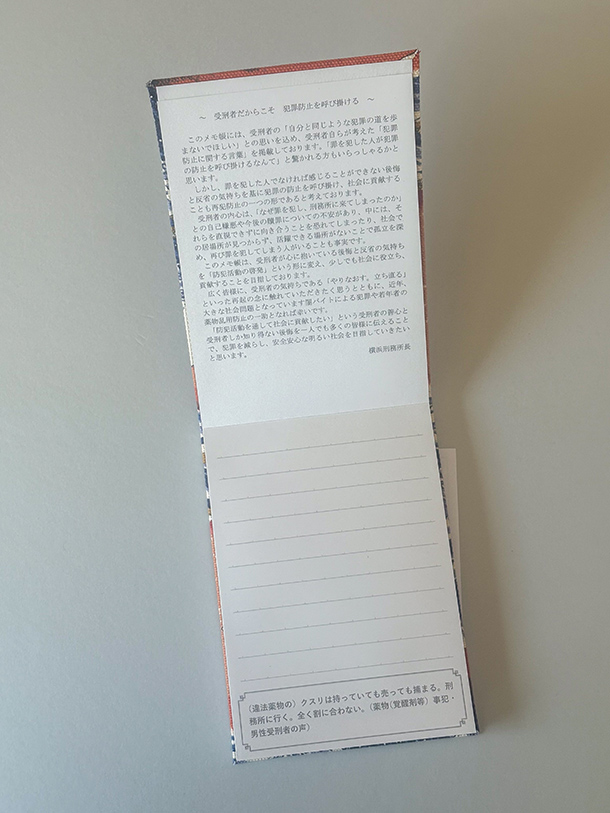 ～ 受刑者だからこそ 犯罪防止を呼び掛ける ～
このメモ帳には、受刑者の「自分と同じような犯罪の道を歩
まないでほしい」との思いを込め、受刑者自らが考えた「犯罪
防止に関する言葉」を掲載しております。「罪を犯した人が犯罪
の防止を呼び掛けるなんて」と驚かれる方もいらっしゃるかと
思います。
しかし、罪を犯した人でなければ感じることができない後悔
と反省の気持ちを基に犯罪の防止を呼び掛け、社会に貢献する
ことも再犯防止の一つの形であると考えております。
受刑者の内心は、「なぜ罪を犯し、刑務所に来てしまったのか」
との自己嫌悪や今後の贖罪についての不安があり、中には、そ
れらを直視できずに向き合うことを恐れてしまったり、社会で
の居場所が見つからず、活躍できる場所がないことで孤立を深
め、再び罪を犯してしまう人がいることも事実です。
このメモ帳は、受刑者が心に抱いている後悔と反省の気持ち
を「防犯活動の啓発」という形に変え、少しでも社会に役立ち、
貢献することを目指しております。
広く皆様に、受刑者の気持ちである「やりなおす。立ち直る」
といった再起の念に触れていただきたく思うとともに、近年、
大きな社会問題となっています闇バイトによる犯罪や若年者の
薬物乱用防止の一助となれば幸いです。
「防犯活動を通して社会に貢献したい」という受刑者の善心と
受刑者しか知り得ない後悔を一人でも多くの皆様に伝えること
で、犯罪を減らし、安全安心な明るい社会を目指していきたい
と思います。
横浜刑務所長
（違法薬物の）クスリは持っていても売っても捕まる。刑
務所に行く。全く割に合わない。（薬物（覚醒剤等）事犯・
男性受刑者の声）